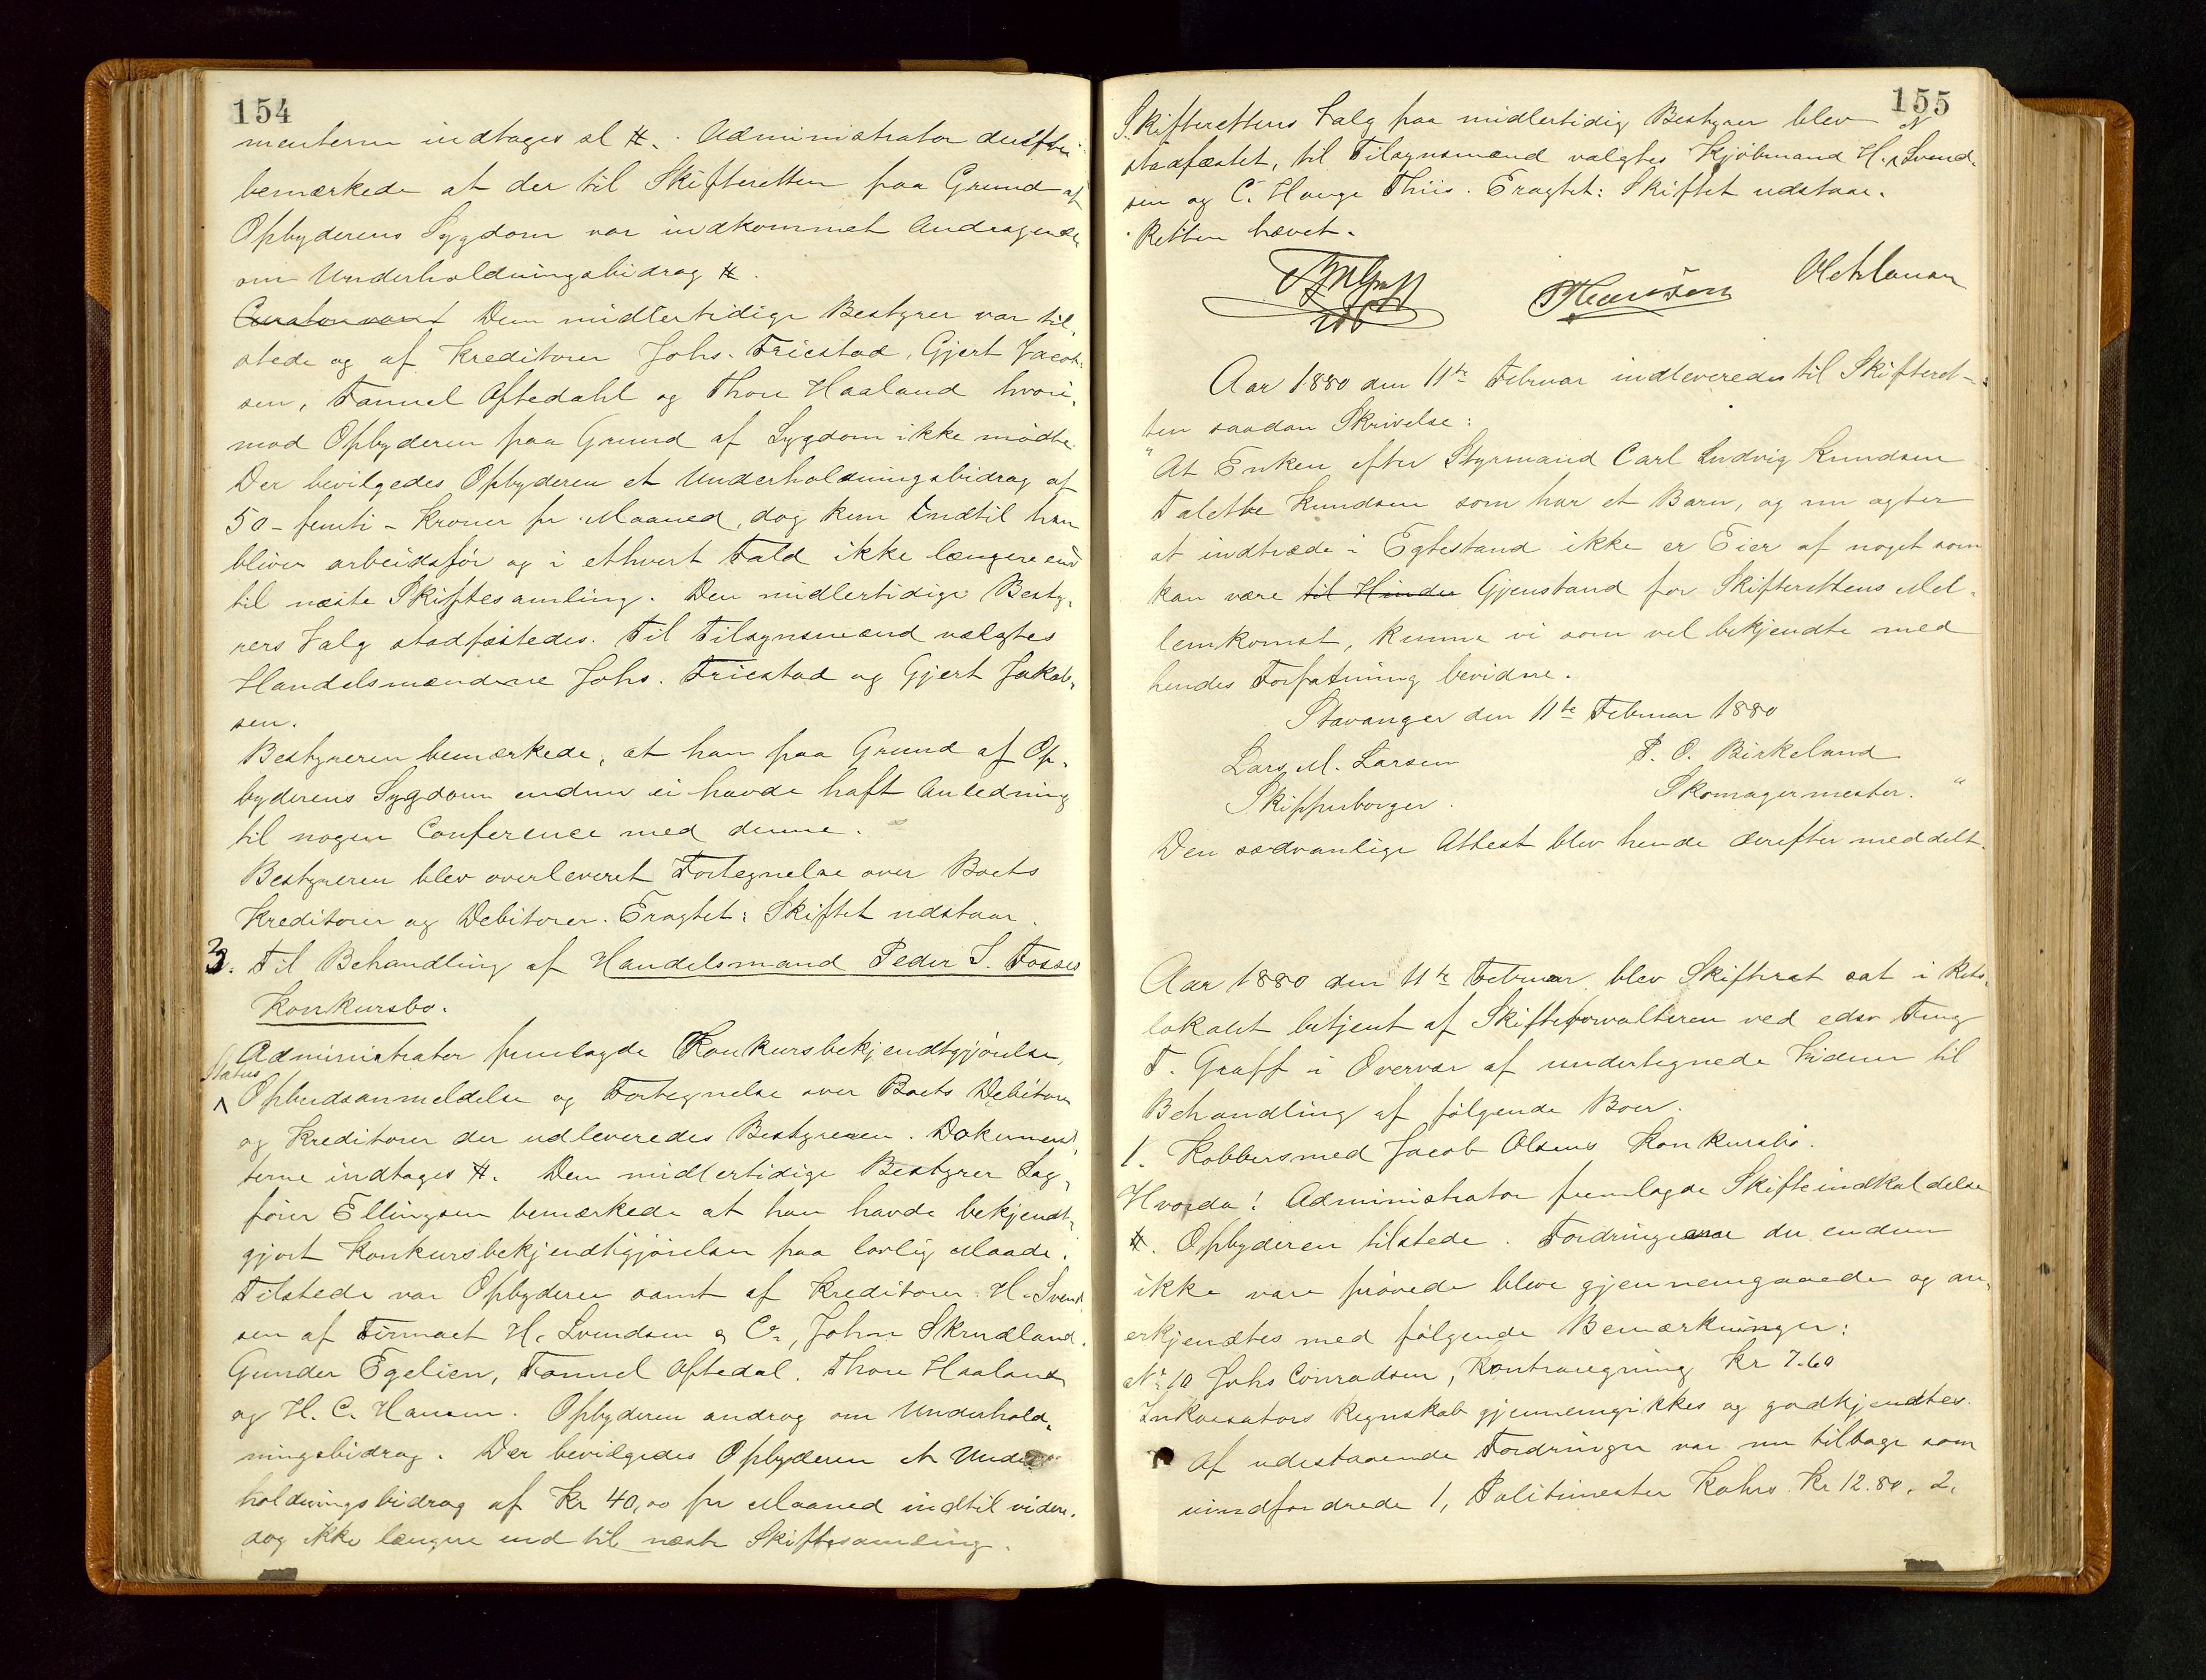 154
menterne indtages sl #. Administrator
bemærkede at der til Skifteretten paa Grund af
Opbyderens Sygdom var indkommet Andragende
om Underholdningsbidrag #.
Den midlertidige Bestyrer var til-
stede og af Kreditorer Johs. Friestad, Gjert Jacob-
sen, Tønnel Aftedahl og Thore Haaland hvori-
mod Opbyderen paa Grund af Sygdom ikke mødte.
Der bevilgedes Opbyderen et Underholdningsbidrag af
50 - femti - Kroner pr. Maaned, dog kun indtil han
bliver arbeidsfør og i ethvert Fald ikke længere end
til næste Skiftesamling. Den midlertidige Besty-
rers Valg stadfæstedes. Til Tilsynsmænd valgtes
Handelsmændene Johs. Friestad og Gjert Jakob-
sen.
Bestyreren bemærkede, at han paa Grund af Op-
byderens Sygdom endnu ei havde haft Anledning
til nogen Conference med denne.
Bestyreren blev overleveret Fortegnelse over Boets
Kreditorer og Debitorer. Eragtet: Skiftet udstaar.
3. Til Behandling af Handelsmand Peder S. Fosses
Konkursbo.
Administrator fremlagde Konkursbekjendtgjørelse,
Status
Opbudsanmeldelse og Fortegnelse over Boets Debitorer
og Kreditorer der udleveredes Bestyreren. Dokumen-
terne indtages #. Den midlertidige Bestyrer Sag-
fører Ellingsen bemærkede at han havde bekjendt-
gjort Konkursbekjendtgjørelsen paa lovlig Maade.
Tilstede var Opbyderen samt af Kreditorer H. Svend-
sen af Firmaet H. Svendsen & Co, John Skrudland.
Gunder Egelien, Tønnel Aftedal. Thore Haaland
og H. C. Hansen. Opbyderen androg om Underhold-
ningsbidrag. Der bevilgedes Opbyderen et Under-
holdningsbidrag af Kr 40,00 pr Maaned indtil videre.
dog ikke længere end til næste Skiftesamling.
155
Skifterettens Valg paa midlertidig Bestyrer blev
stadfæstet, til Tilsynsmænd valgtes Kjøbmand H. N Svend-
sen og C. Hauge Thiis. Eragtet: Skiftet udstaar.
Retten hævet.
Aar 1880 den 11te Februar indleveredes til Skifteret-
ten saadan Skrivelse:
"At Enken efter Styrmand Carl Ludvig Knudsen
Talette Knudsen som har et Barn, og nu agter
at indtræde i Egtestand ikke er Eier af noget som
kan være til Hinder Gjenstand for Skifterettens Mel-
lemkomst, kunne vi som vel bekjendte med
hendes Forfatning bevidne.
Stavanger den 11te Februar 1880
Lars M. Larsen P. O. Birkeland
Skipperborger. Skomagermester. "
Den sædvanlige Attest blev hende derefter meddelt.
Aar 1880 den 11te Februar blev Skifteret sat i Rets-
lokalet betjent af Skifteforvalteren ved edsv Fmg
T. Graff i Overvær af undertegnede Vidner til
Behandling af følgende Boer.
1. Kobbersmed Jacob Olsens Konkursbo.
Hvorda! Administrator fremlagde Skifteindkaldelse
#. Opbyderen tilstede. Fordringerne der endnu
ikke vare prøvede bleve gjennemgaaede og an-
erkjendtes med følgende Bemærkninger:
No 10 Johs Conradsen, Kontraregning Kr 7.60
Inkassators Regnskab gjennemgikkes og godkjendtes.
Af udestaaende Fordringer var nu tilbage som
uindfordrede 1, Politimester Kahrs Kr 12.80. 2,